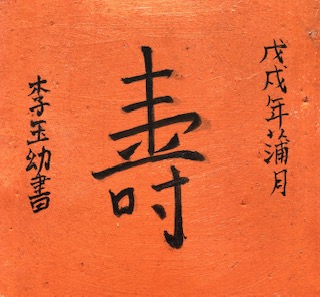 戊戌年蒲月
壽
李玉幼書